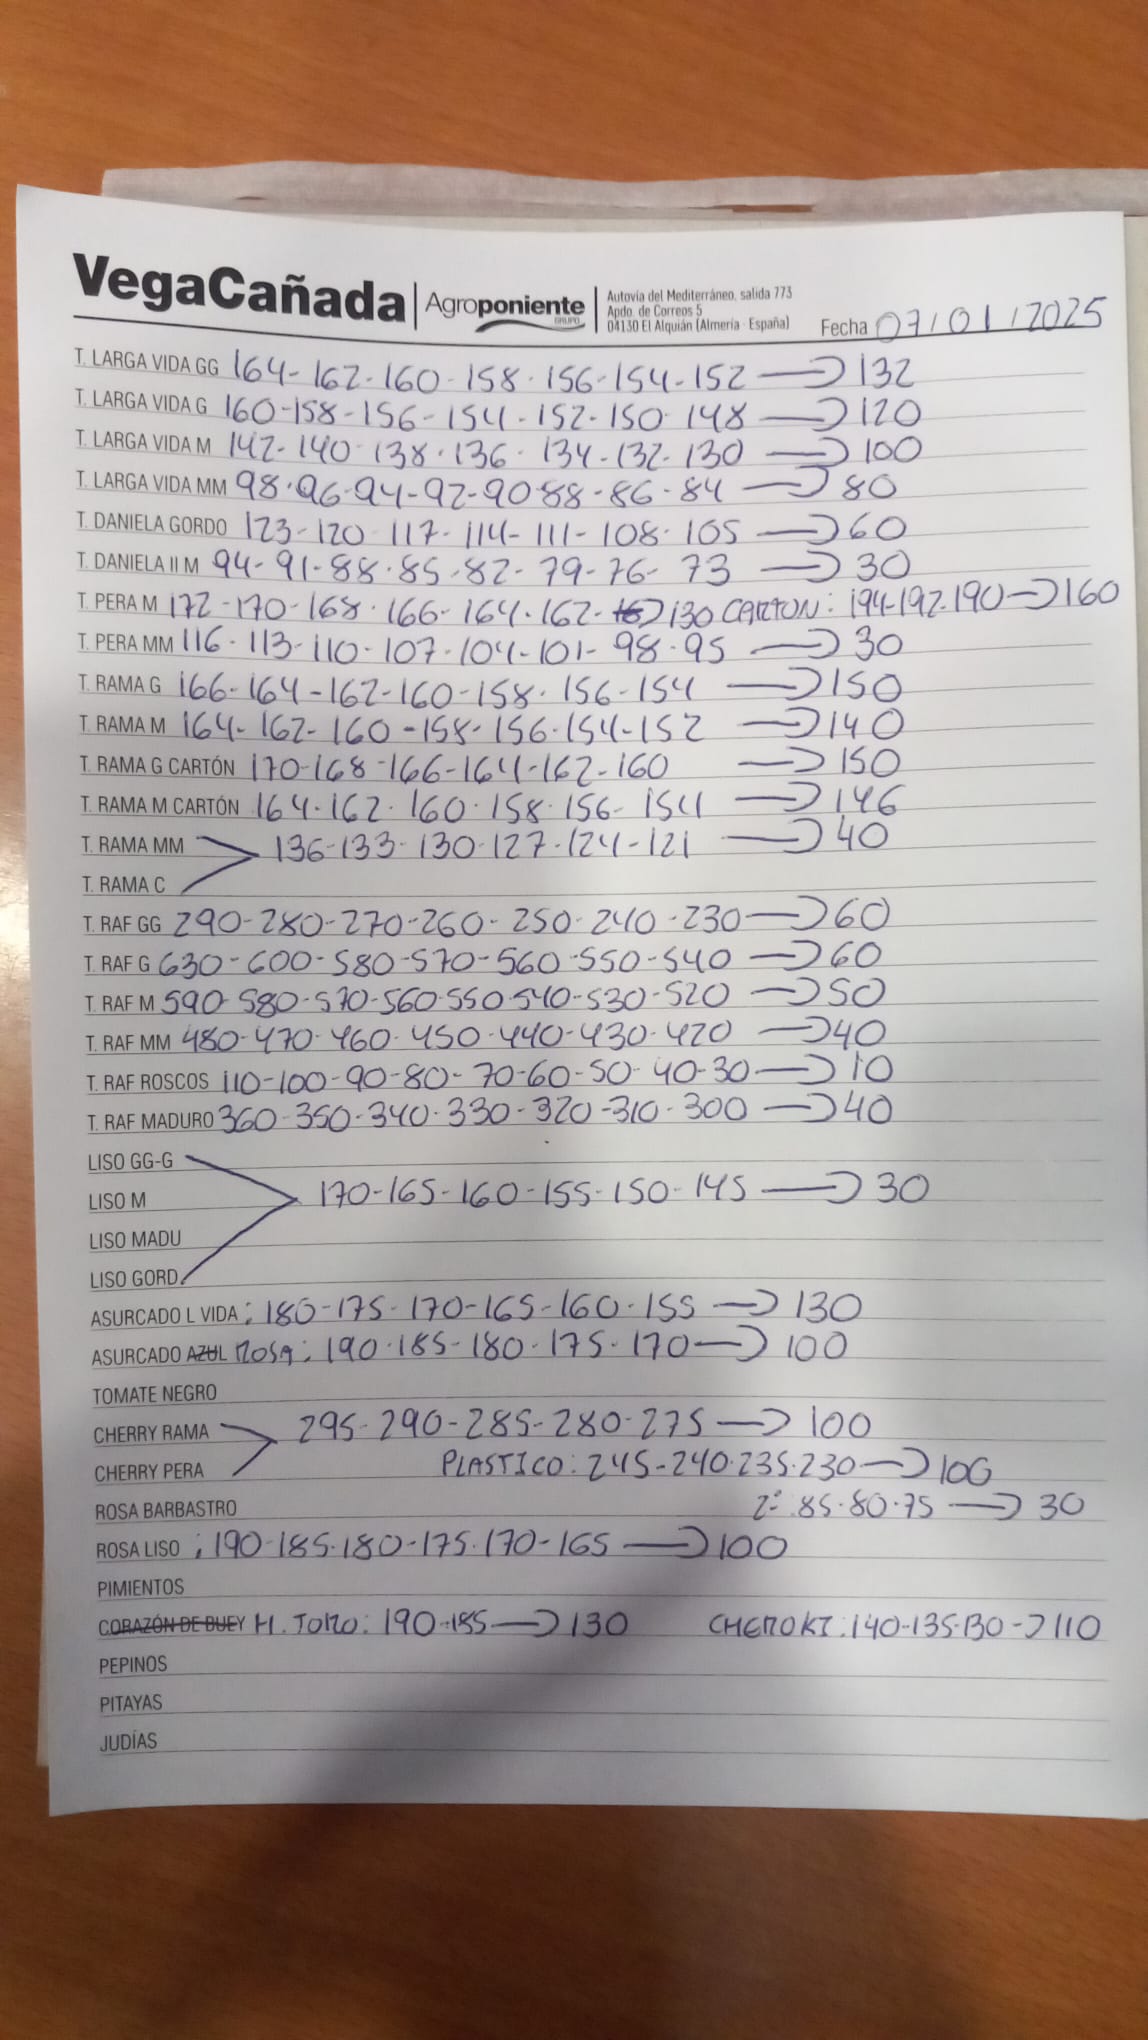 VegaCañada | Agroponiente GRUPO | Autovía del Mediterráneo, salida 773
Apdo. de Correos 5
04130 El Alquián (Almería - España)
Fecha 07/01/2025
T. LARGA VIDA GG 164-162-160-158-156-154-152 → 132
T. LARGA VIDA G 160-158-156-154-152-150-148 → 120
T. LARGA VIDA M 142-140-138-136-134-132-130 → 100
T. LARGA VIDA MM 98-96-94-92-90-88-86-84 → 80
T. DANIELA GORDO 123-120-117-114-111-108-105 → 60
T. DANIELA II M 94-91-88-85-82-79-76-73 → 30
T. PERA M 172-170-168-166-164-162- → 130 CARTON: 194-192-190 → 160
T. PERA MM 116-113-110-107-104-101-98-95 → 30
T. RAMA G 166-164-162-160-158-156-154 → 150
T. RAMA M 164-162-160-158-156-154-152 → 140
T. RAMA G CARTÓN 170-168-166-164-162-160 → 150
T. RAMA M CARTÓN 164-162-160-158-156-154 → 146
T. RAMA MM 136-133-130-127-124-121 → 40
T. RAMA C
T. RAF GG 290-280-270-260-250-240-230 → 60
T. RAF G 630-600-580-570-560-550-540 → 60
T. RAF M 590-580-570-560-550-540-530-520 → 50
T. RAF MM 480-470-460-450-440-430-420 → 40
T. RAF ROSCOS 110-100-90-80-70-60-50-40-30 → 10
T. RAF MADURO 360-350-340-330-320-310-300 → 40
LISO GG-G
LISO M 170-165-160-155-150-145 → 30
LISO MADU
LISO GORD.
ASURCADO L VIDA : 180-175-170-165-160-155 → 130
ASURCADO AZUL ROSA: 190-185-180-175-170 → 100
TOMATE NEGRO
CHERRY RAMA 295-290-285-280-275 → 100
CHERRY PERA PLASTICO: 245-240-235-230 → 100
ROSA BARBASTRO 2ª: 85-80-75 → 30
ROSA LISO : 190-185-180-175-170-165 → 100
PIMIENTOS
CORAZÓN DE BUEY M. TORO: 190-185 → 130 CHEROKI: 140-135-130 → 110
PEPINOS
PITAYAS
JUDÍAS